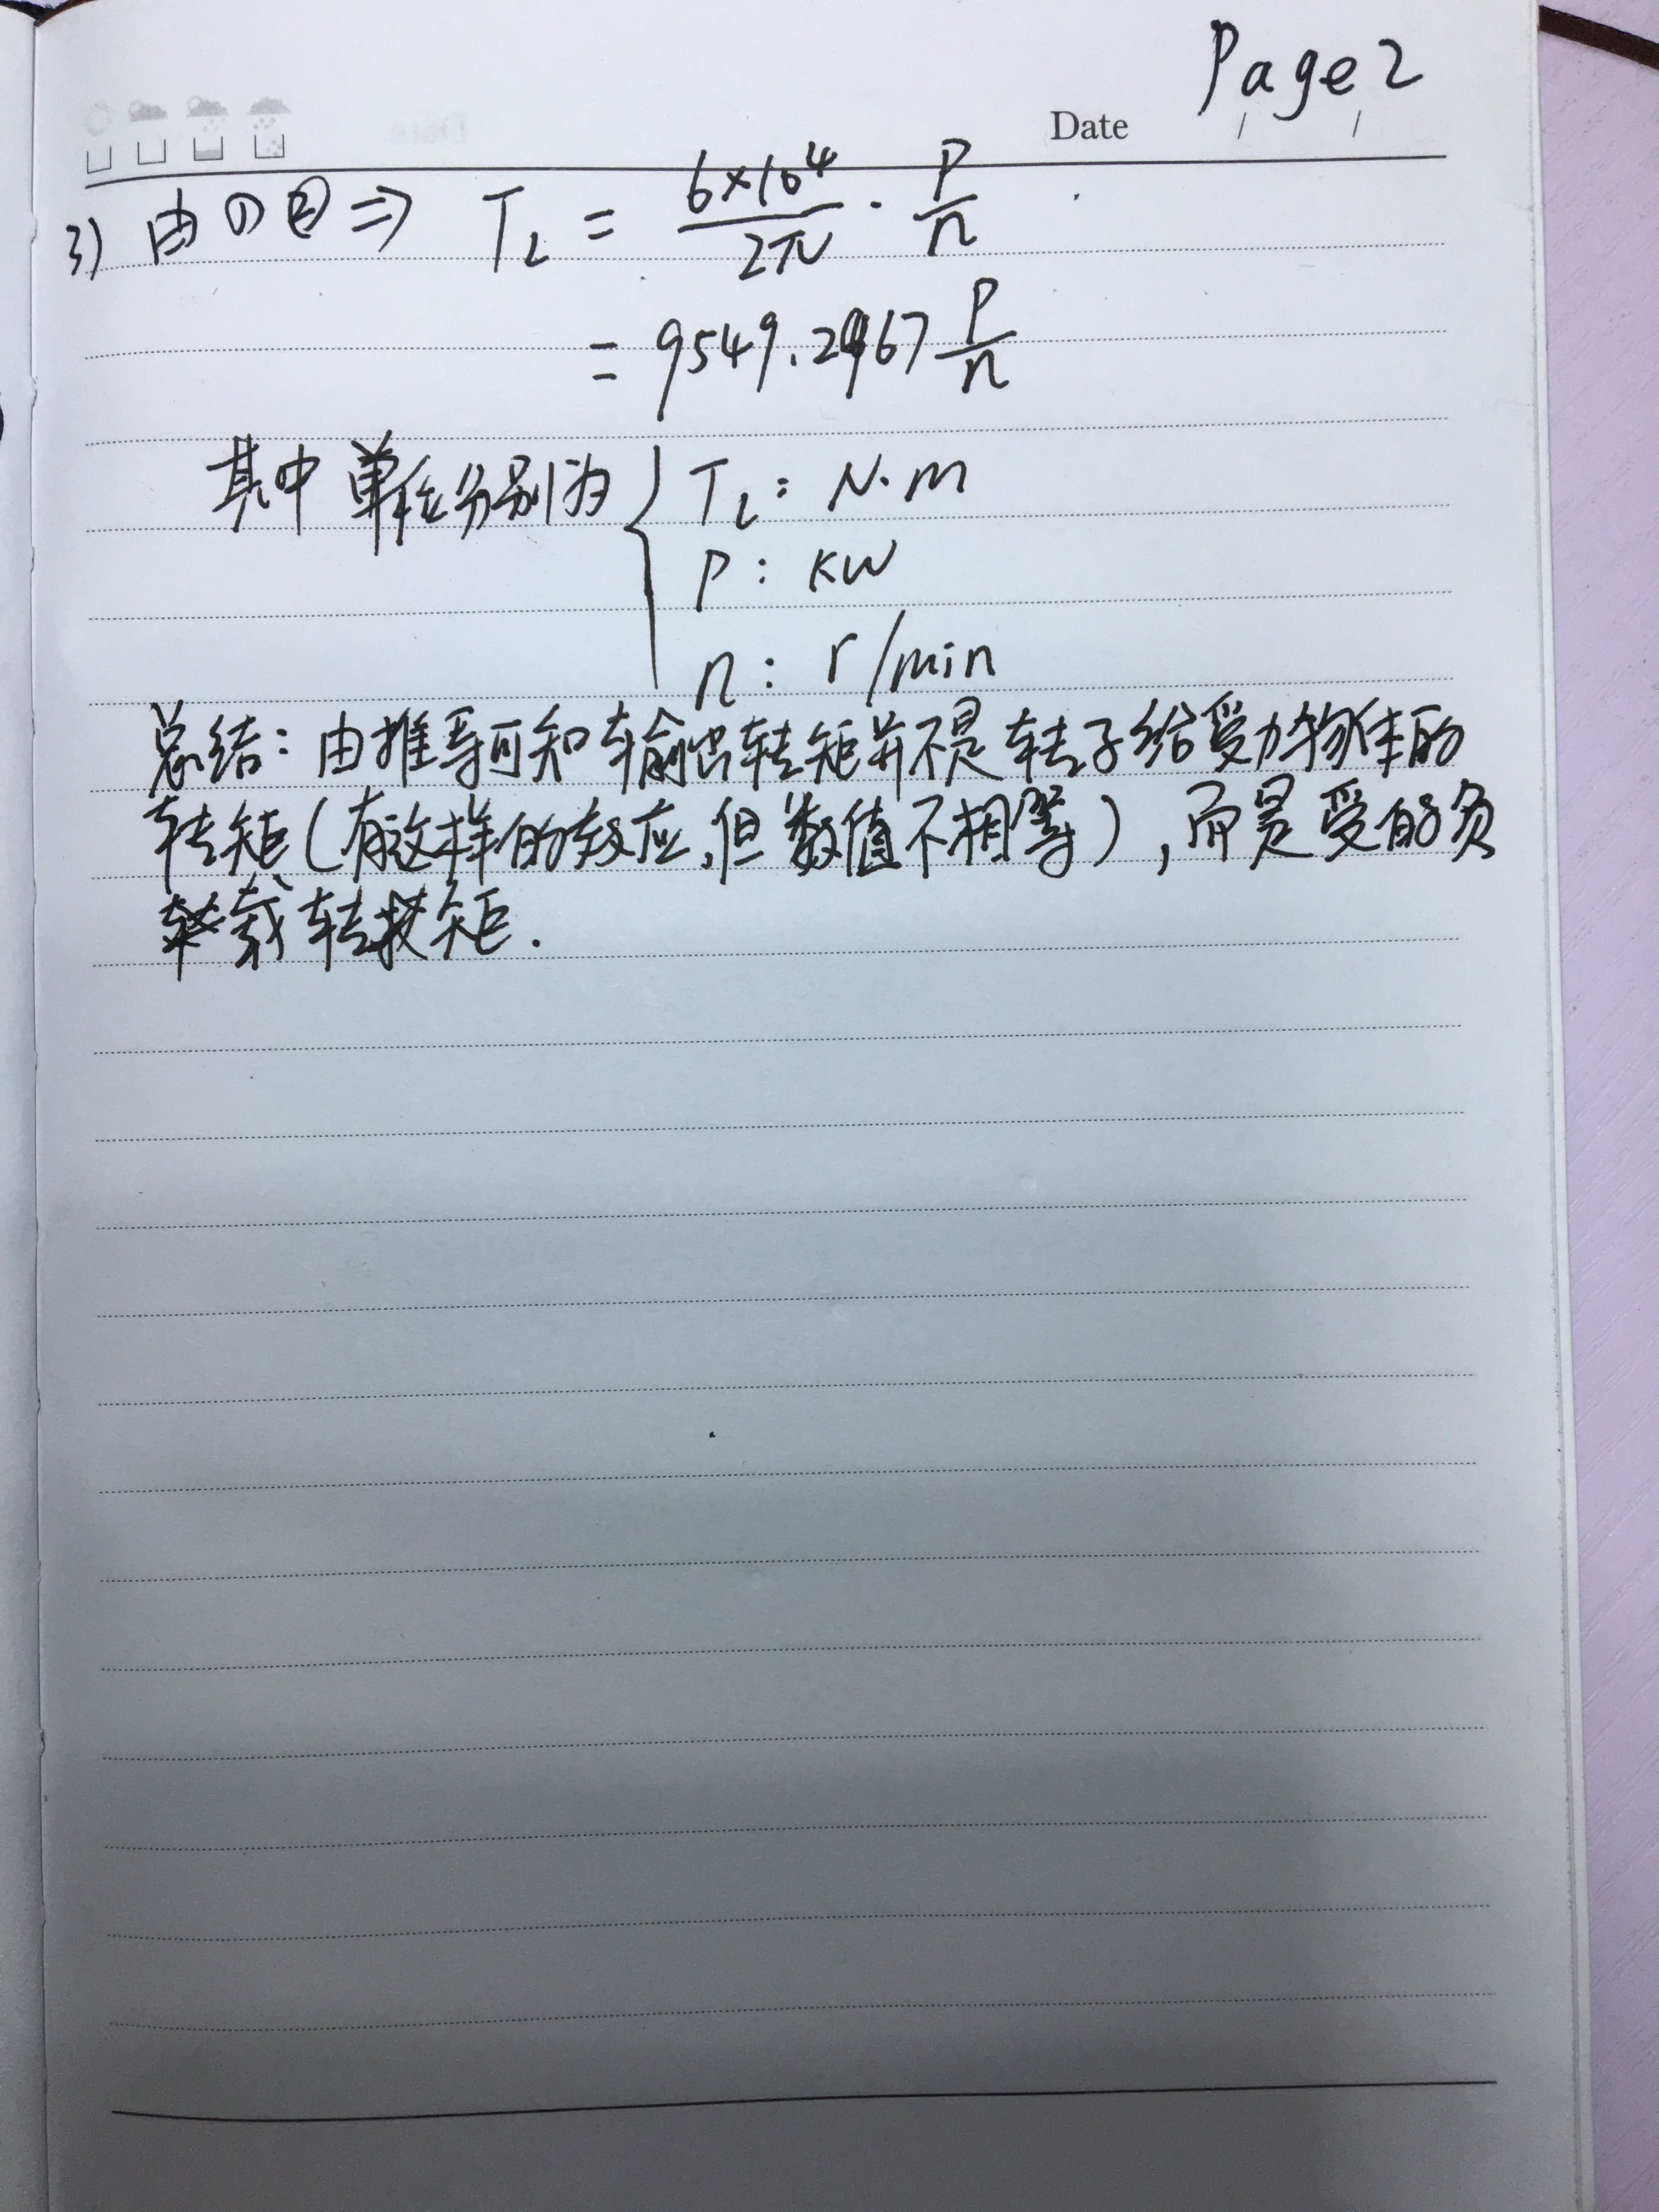 Page 2
Date / /
3) 由①② ⇒ T_L = \frac{6×10^4}{2π} · \frac{P}{n}
= 9549.2967 \frac{P}{n}
其中单位分别为 { T_L: N·m
P: KW
n: r/min
总结: 由推导可知输出转矩并不是转子给受力物体的
转矩(有这样的效应,但数值不相等),而是受的负
载转矩.